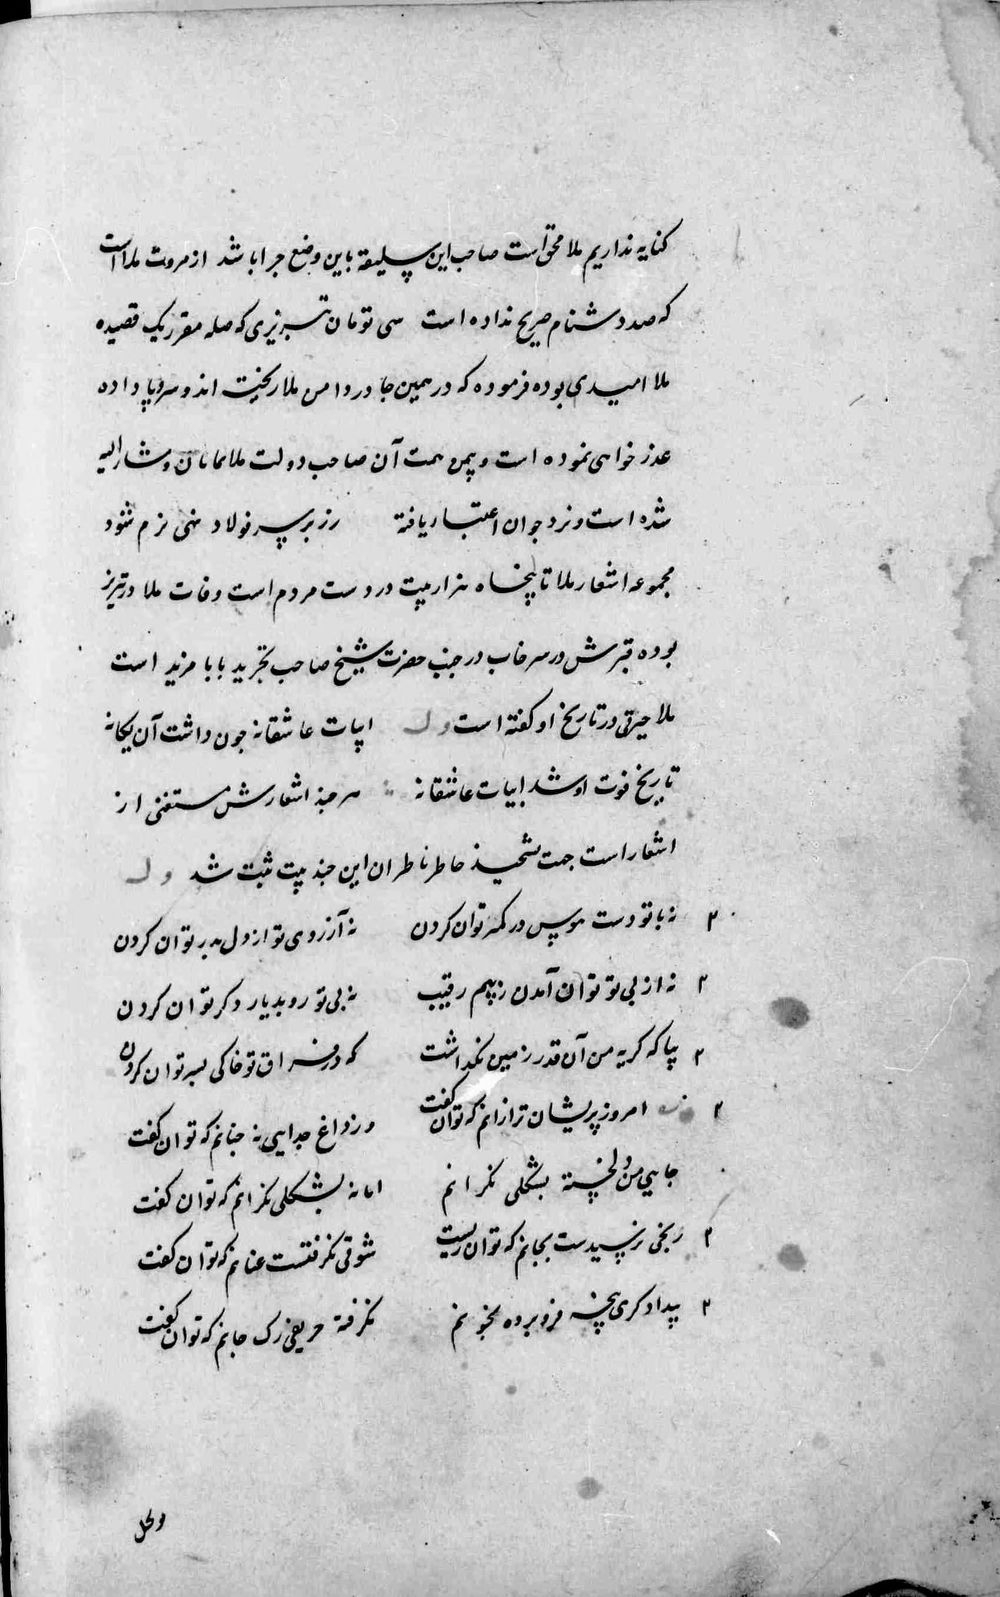 کنایه نداریم ملا محق است صاحب این سلیقه باین وضع چرا باشد از مروت ملا است
که صد دشنام صریح نداده است سی تومان تبریزی که صله مقرر یک قصیده
ملا امیدی بوده فرموده که در همین جا در دامن ملا ریخته اند و سروپا داده
عذر خواهی نموده است و بیمن همت آن صاحب دولت ملا نمانان و مشار الیه
شده است و نرد جوان اعتبار یافته زر بر سر فولاد نهی نرم شود
مجموعه اشعار ملا تا پنجاه هزار بیت در دست مردم است وفات ملا در تبریز
بوده قبرش در سرخاب در جنب حضرت شیخ صاحب تجرید بابا مزید است
ملا حیرتی در تاریخ او گفته است وله ابیات عاشقانه چون داشت آن یگانه
تاریخ فوت او شد ابیات عاشقانه هر چند اشعارش مستغنی از
اشعار است جهت تشحیذ خاطر ناظران این چند بیت ثبت شد وله
۲ نه با تو دست هوس در کمر توان کردن نه آرزوی تو از دل بدر توان کردن
۲ نه از پی تو توان آمدن ز بیم رقیب نه بی تو رو بدیار دگر توان کردن
۲ بیا که گریه من آن قدر زمین نگذاشت که در فراق تو خاکی بسر توان کردن
۲ امروز پریشان تر ازانم که توان گفت وز داغ جدایی نه چنانم که توان گفت
جایی من دلخسته بشکلی نگرانم اما نه بشکلی نگرانم که توان گفت
۲ رنجی نرسیدست بجانم که توان زیست شوقی نگرفتست عنانم که توان گفت
۲ بیدادگری پنجه فرو برده بخونم نگرفته حریفی رگ جانم که توان گفت